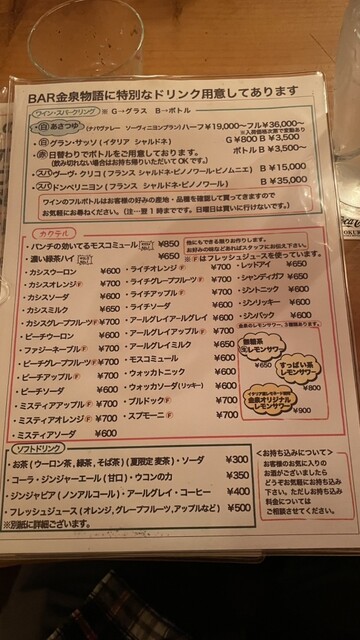 BAR金泉物語に特別なドリンク用意してあります
ワイン・スパークリング ※ G→グラス B→ボトル
・白 あさつゆ (ナパヴァレー ソーヴィニヨンブラン) ハーフ¥19,000〜フル¥36,000〜
※入荷価格次第で変動あり
・白 グラン・サッソ (イタリア シャルドネ) G¥800 B¥3,500
・赤 日替わりでボトルをご用意しております。 ボトル¥3,500〜
(飲み切れない場合はお持ち帰りいただいてOKです。)
・スパ ヴーヴ・クリコ (フランス シャルドネ・ピノノワール・ピノムニエ) B ¥15,000
・スパ ドンペリニヨン (フランス シャルドネ・ピノノワール) B ¥35,000
ワインのフルボトルはお客様の好みの産地・品種を確認して買ってきますので
お気軽にお尋ねください。(注…翌1時までです。日曜日は買いに行けないです。)
カクテル
・パンチの効いてるモスコミュール ¥850
・濃い緑茶ハイ ¥650
他にもできる限りお作りします。
お好みの味などあればスタッフにお伝え下さい。
※Fはフレッシュジュースを使っています。
・カシスウーロン ¥600
・カシスオレンジF ¥700
・カシスソーダ ¥600
・カシスミルク ¥650
・カシスグレープフルーツF ¥700
・ピーチウーロン ¥600
・ファジーネーブルF ¥700
・ピーチグレープフルーツF ¥700
・ピーチアップルF ¥700
・ピーチソーダ ¥600
・ミスティアアップルF ¥700
・ミスティアオレンジF ¥700
・ミスティアソーダ ¥600
・ライチオレンジF ¥700
・ライチグレープフルーツF ¥700
・ライチアップルF ¥700
・ライチソーダ ¥600
・アールグレイアールグレイ ¥600
・アールグレイアップルF ¥700
・アールグレイミルク ¥650
・モスコミュール ¥600
・ウォッカトニック ¥600
・ウォッカソーダ(リッキー) ¥600
・ブルドックF ¥700
・スプモーニF ¥700
・レッドアイ ¥650
・シャンディガフ ¥650
・ジントニック ¥600
・ジンリッキー ¥600
・ジンバック ¥600
金泉のレモンサワー、3種類あります。
生レモンサワー
¥650
すっぱい系
レモンサワー
¥800
金泉オリジナル
レモンサワー
¥900
ソフトドリンク
・お茶(ウーロン茶,緑茶,そば茶) (夏限定 麦茶)・ソーダ ¥300
・コーラ・ジンジャーエール(甘口)・ウコンの力 ¥350
・ジンジャビア(ノンアルコール)・アールグレイ・コーヒー ¥400
・フレッシュジュース(オレンジ,グレープフルーツ,アップルなど) ¥500
※別紙に詳細ございます。
<お持ち込みについて>
お客様のお気に入りの
お酒がございましたら
どうぞお気軽にお持ち込み
下さい。ただしお持ち込み
料金については
ご相談させてください。